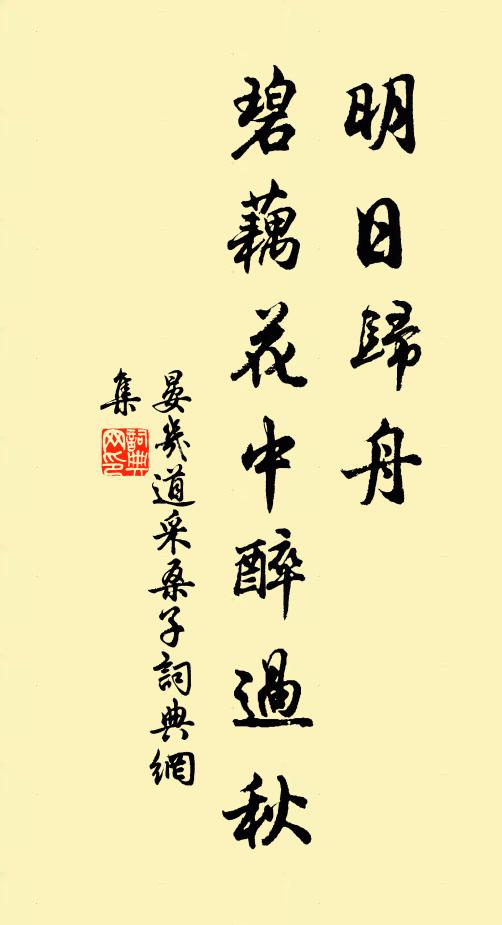 明日歸舟
碧藕花中醉過秋
晏幾道采桑子詞典網
集
詞典
网印